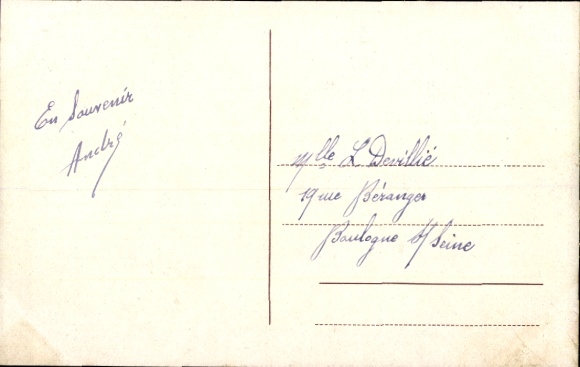 En Souvenir
André
Mlle L Devillié
19 rue Béranger
Boulogne s/Seine